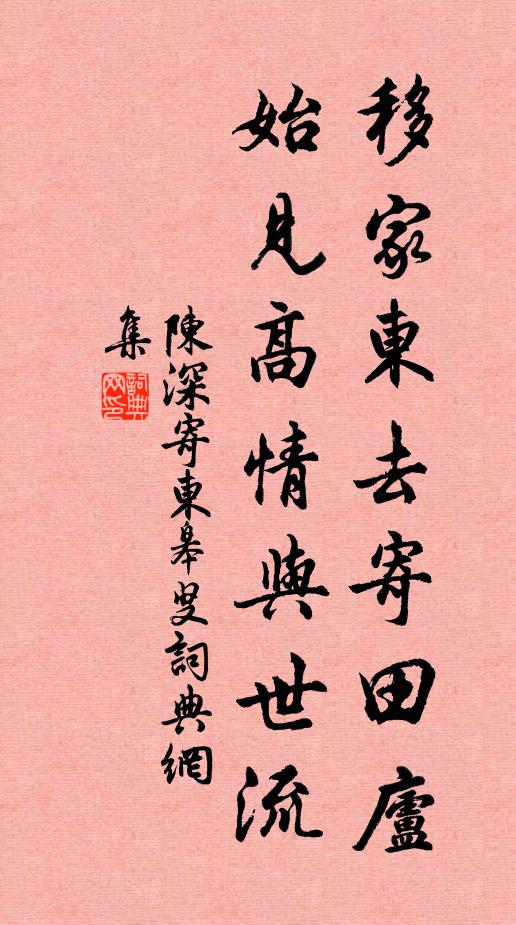 移家東去寄田廬
始見高情與世流
陳深寄東皋叟詞典網
集
詞典
网印